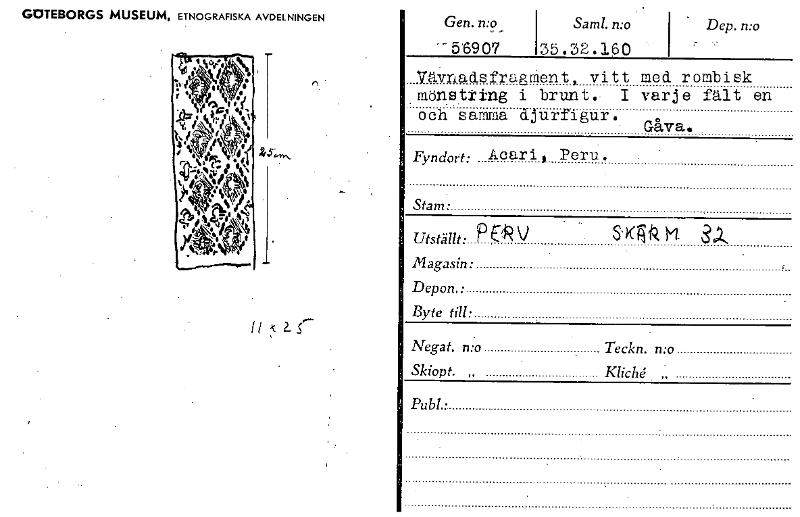 GÖTEBORGS MUSEUM, ETNOGRAFISKA AVDELNINGEN
25cm
11 x 25
Gen. n:o Saml. n:o Dep. n:o
56907 35.32.160
Vävnadsfragment, vitt med rombisk
mönstring i brunt. I varje fält en
och samma djurfigur.
Gåva.
Fyndort: Acari, Peru.
Stam:
Utställt: PERU SKÄRM 32
Magasin:
Depon.:
Byte till:
Negat. n:o Teckn. n:o
Skiopt. „ Kliché „
Publ.: